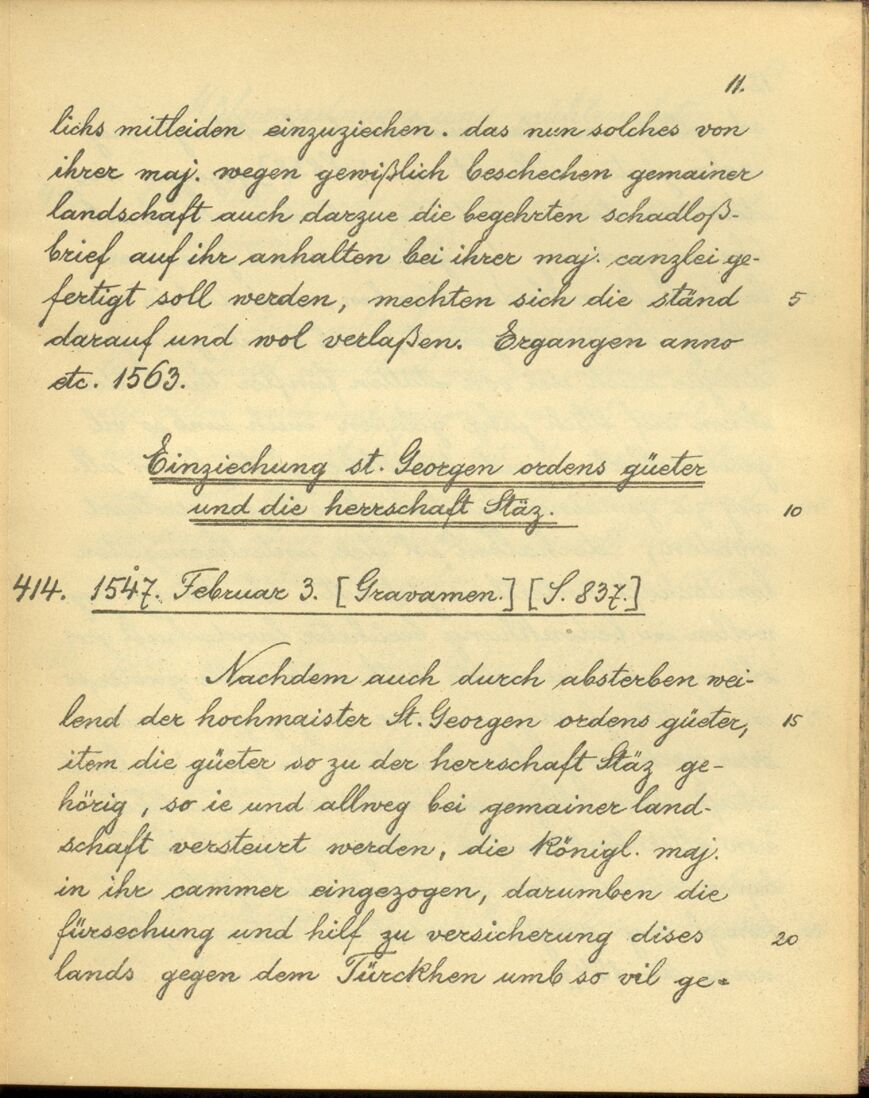 11.
lichs mitleiden einzuziechen. das nun solches von
ihrer maj. wegen gewißlich beschechen gemainer
landschaft auch darzue die begehrten schadloß-
brief auf ihr anhalten bei ihrer maj. canzlei ge-
fertigt soll werden, mechten sich die ständ 5
darauf und wol verlaßen. Ergangen anno
etc. 1563.
Einziechung st. Georgen ordens güeter
und die herrschaft Stäz. 10
414. 1547. Februar 3. [Gravamen.] [S. 837.]
Nachdem auch durch absterben wei-
lend der hochmaister St. Georgen ordens güeter, 15
item die güeter so zu der herrschaft Stäz ge-
hörig, so ie und allweg bei gemainer land-
schaft versteurt werden, die Königl. maj.
in ihr cammer eingezogen, darumben die
fürsechung und hilf zu versicherung dises 20
lands gegen dem Türckhen umb so vil ge-